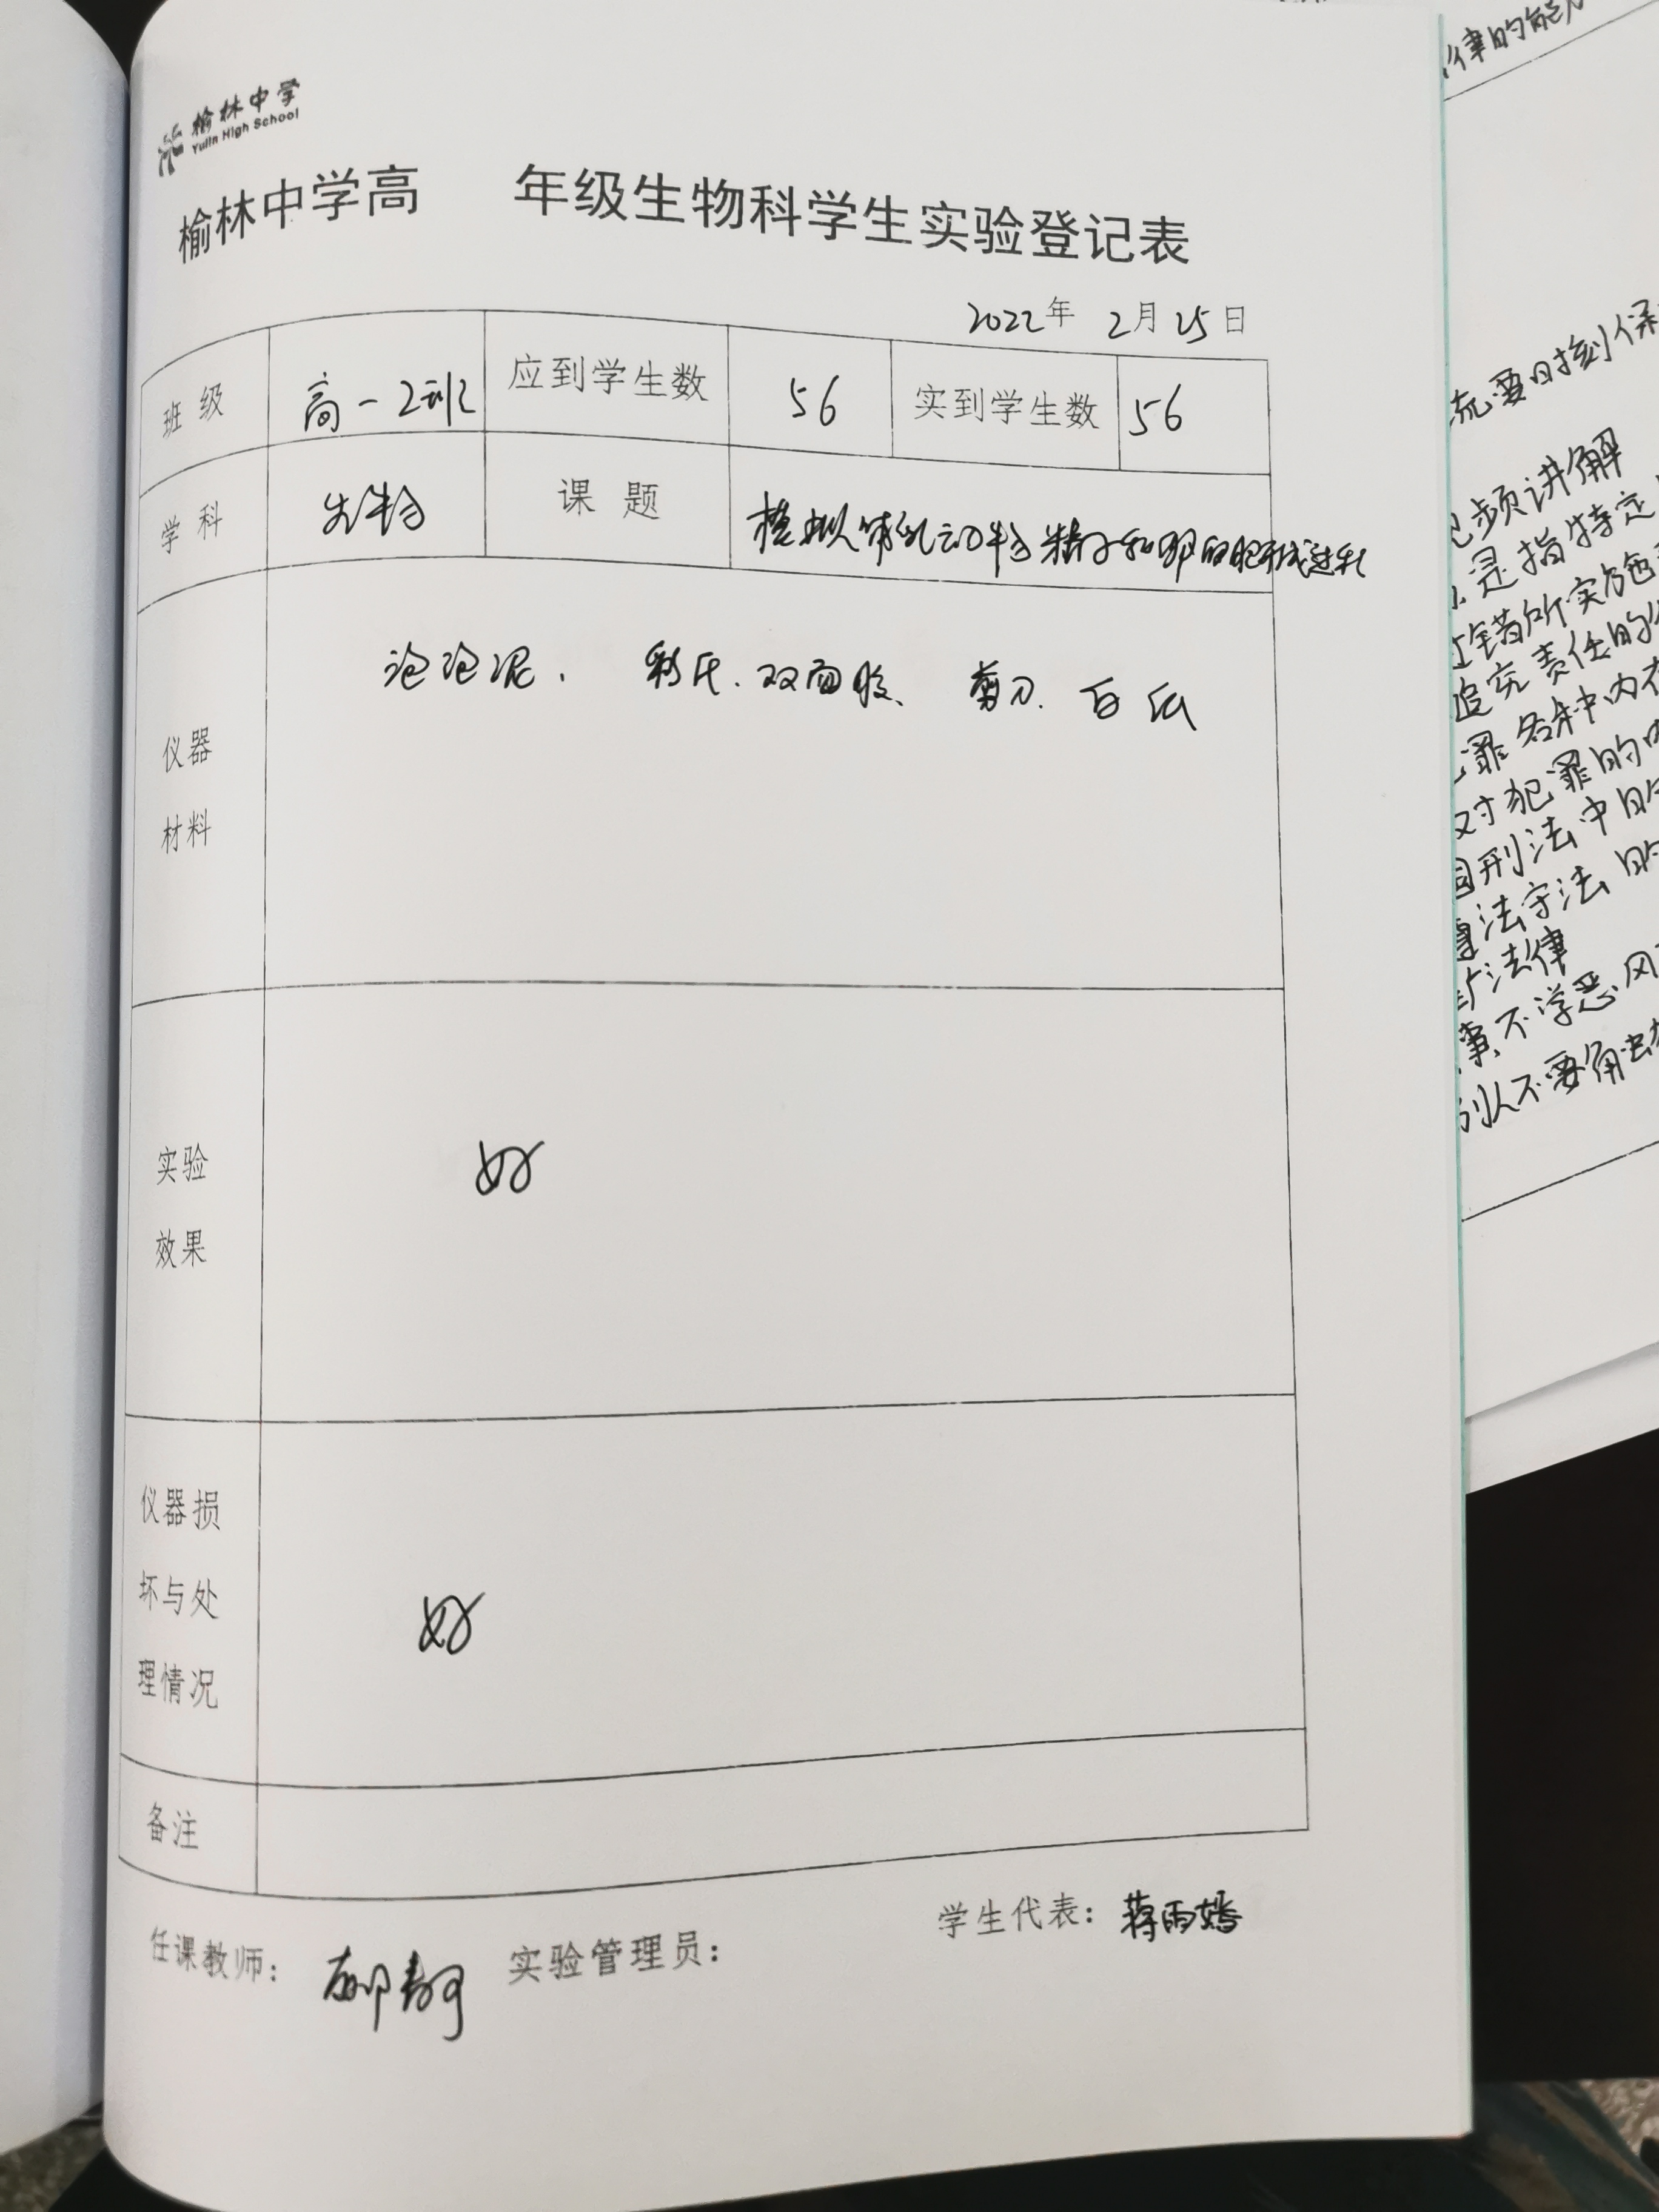 榆林中学
Yulin High School
榆林中学高 年级生物科学生实验登记表
2022年 2月25日
班级 高一2班 应到学生数 56 实到学生数 56
学科 生物 课题 模拟哺乳动物精子和卵细胞形成过程
仪器
材料
泡泡泥、 彩纸、双面胶、 剪刀、白纸
实验
效果
好
仪器损
坏与处
理情况
好
备注
任课教师: 实验管理员: 学生代表: 蒋雨嫣
律的能
流,要时刻保
视频讲解
是指特定
过错所实施
追究责任的
罪名年中内
对犯罪的
国刑法中的
遵法守法的
法律
事,不学恶,风
别人不要